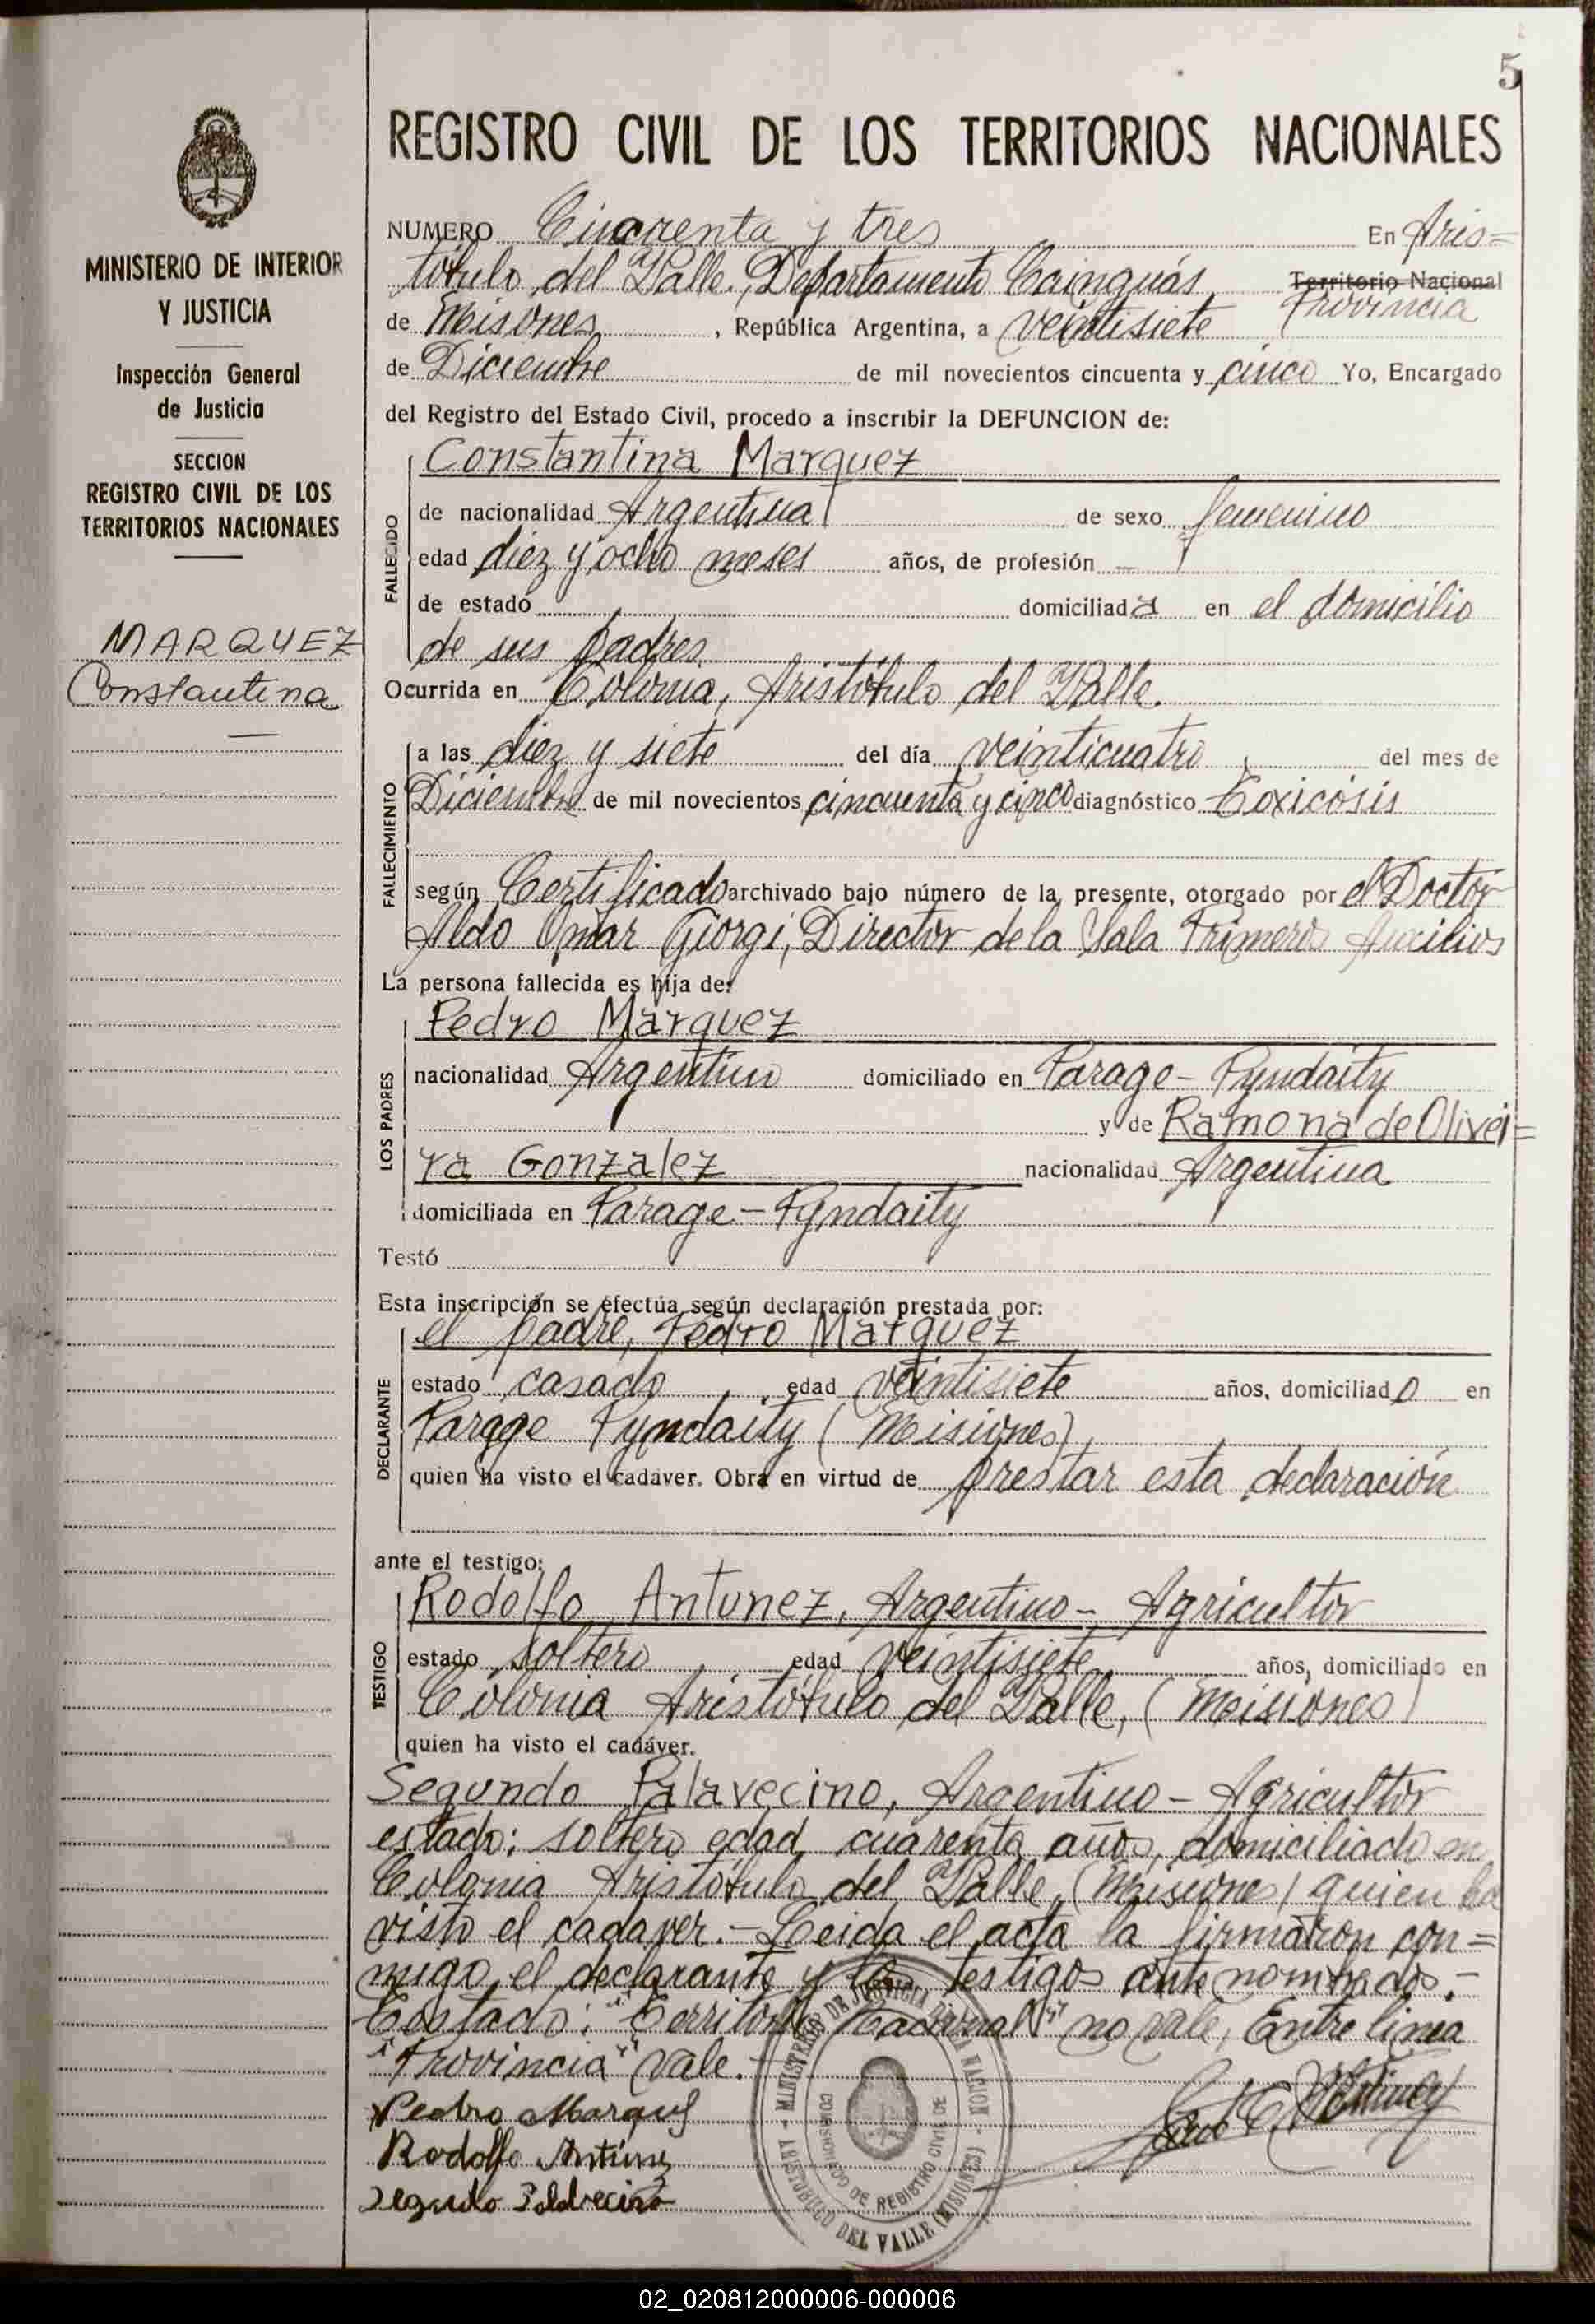 5
MINISTERIO DE INTERIOR
Y JUSTICIA
Inspección General
de Justicia
SECCION
REGISTRO CIVIL DE LOS
TERRITORIOS NACIONALES
MARQUEZ
Constantina
REGISTRO CIVIL DE LOS TERRITORIOS NACIONALES
NUMERO Cincuenta y tres En Aris=
tóbulo del Valle, Departamento Cainguás Territorio Nacional
Provincia
de Misiones, República Argentina, a veintisiete
de Diciembre de mil novecientos cincuenta y cinco Yo, Encargado
del Registro del Estado Civil, procedo a inscribir la DEFUNCION de:
Constantina Marquez
FALLECIDO
de nacionalidad Argentina de sexo femenino
edad diez y ocho meses años, de profesión —
de estado domiciliada en el domicilio
de sus padres
Ocurrida en Colonia, Aristóbulo del Valle.
FALLECIMIENTO
a las diez y siete del día veinticuatro del mes de
Diciembre de mil novecientos cincuenta y cinco diagnóstico Toxicósis
según Certificado archivado bajo número de la presente, otorgado por el Doctor
Aldo Omar Giorgi, Director de la Sala Primeros Auxilios
La persona fallecida es hija de:
LOS PADRES
Pedro Marquez
nacionalidad Argentino domiciliado en Parage - Pyndaity
y de Ramona de Olivei=
ra Gonzalez nacionalidad Argentina
domiciliada en Parage - Pyndaity
Testó
Esta inscripción se efectúa según declaración prestada por:
DECLARANTE
el padre, Pedro Marquez
estado casado, edad veintisiete años, domiciliado en
Parage Pyndaity (Misiones)
quien ha visto el cadáver. Obra en virtud de prestar esta declaración
ante el testigo:
TESTIGO
Rodolfo Antunez, Argentino - Agricultor
estado soltero, edad veintisiete años, domiciliado en
Colonia Aristóbulo del Valle, (Misiones)
quien ha visto el cadáver.
Segundo Palavecino, Argentino - Agricultor
estado: soltero edad cuarenta años, domiciliado en
Colonia Aristóbulo del Valle, (Misiones) quien ha
visto el cadaver. - Leida el acta la firmaron con=
migo, el declarante y los testigos ante nombrados. -
Testado: "Territorio Nacional" no vale, Entre linea
"Provincia" vale. -
Pedro Marquez
Rodolfo Antunez
Segundo Palavecino
MINISTERIO DE JUSTICIA DE LA NACION
COMISARIADO DE REGISTRO CIVIL DE
ARISTOBULO DEL VALLE (MISIONES)
02_020812000006-000006